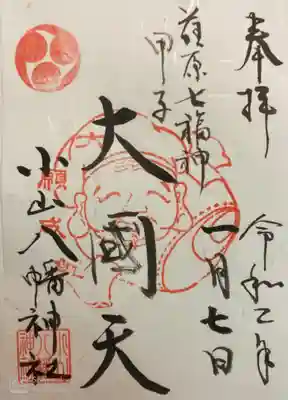 奉拝
令和二年
一月七日
荏原七福神
甲子
大國天
小山八幡神社